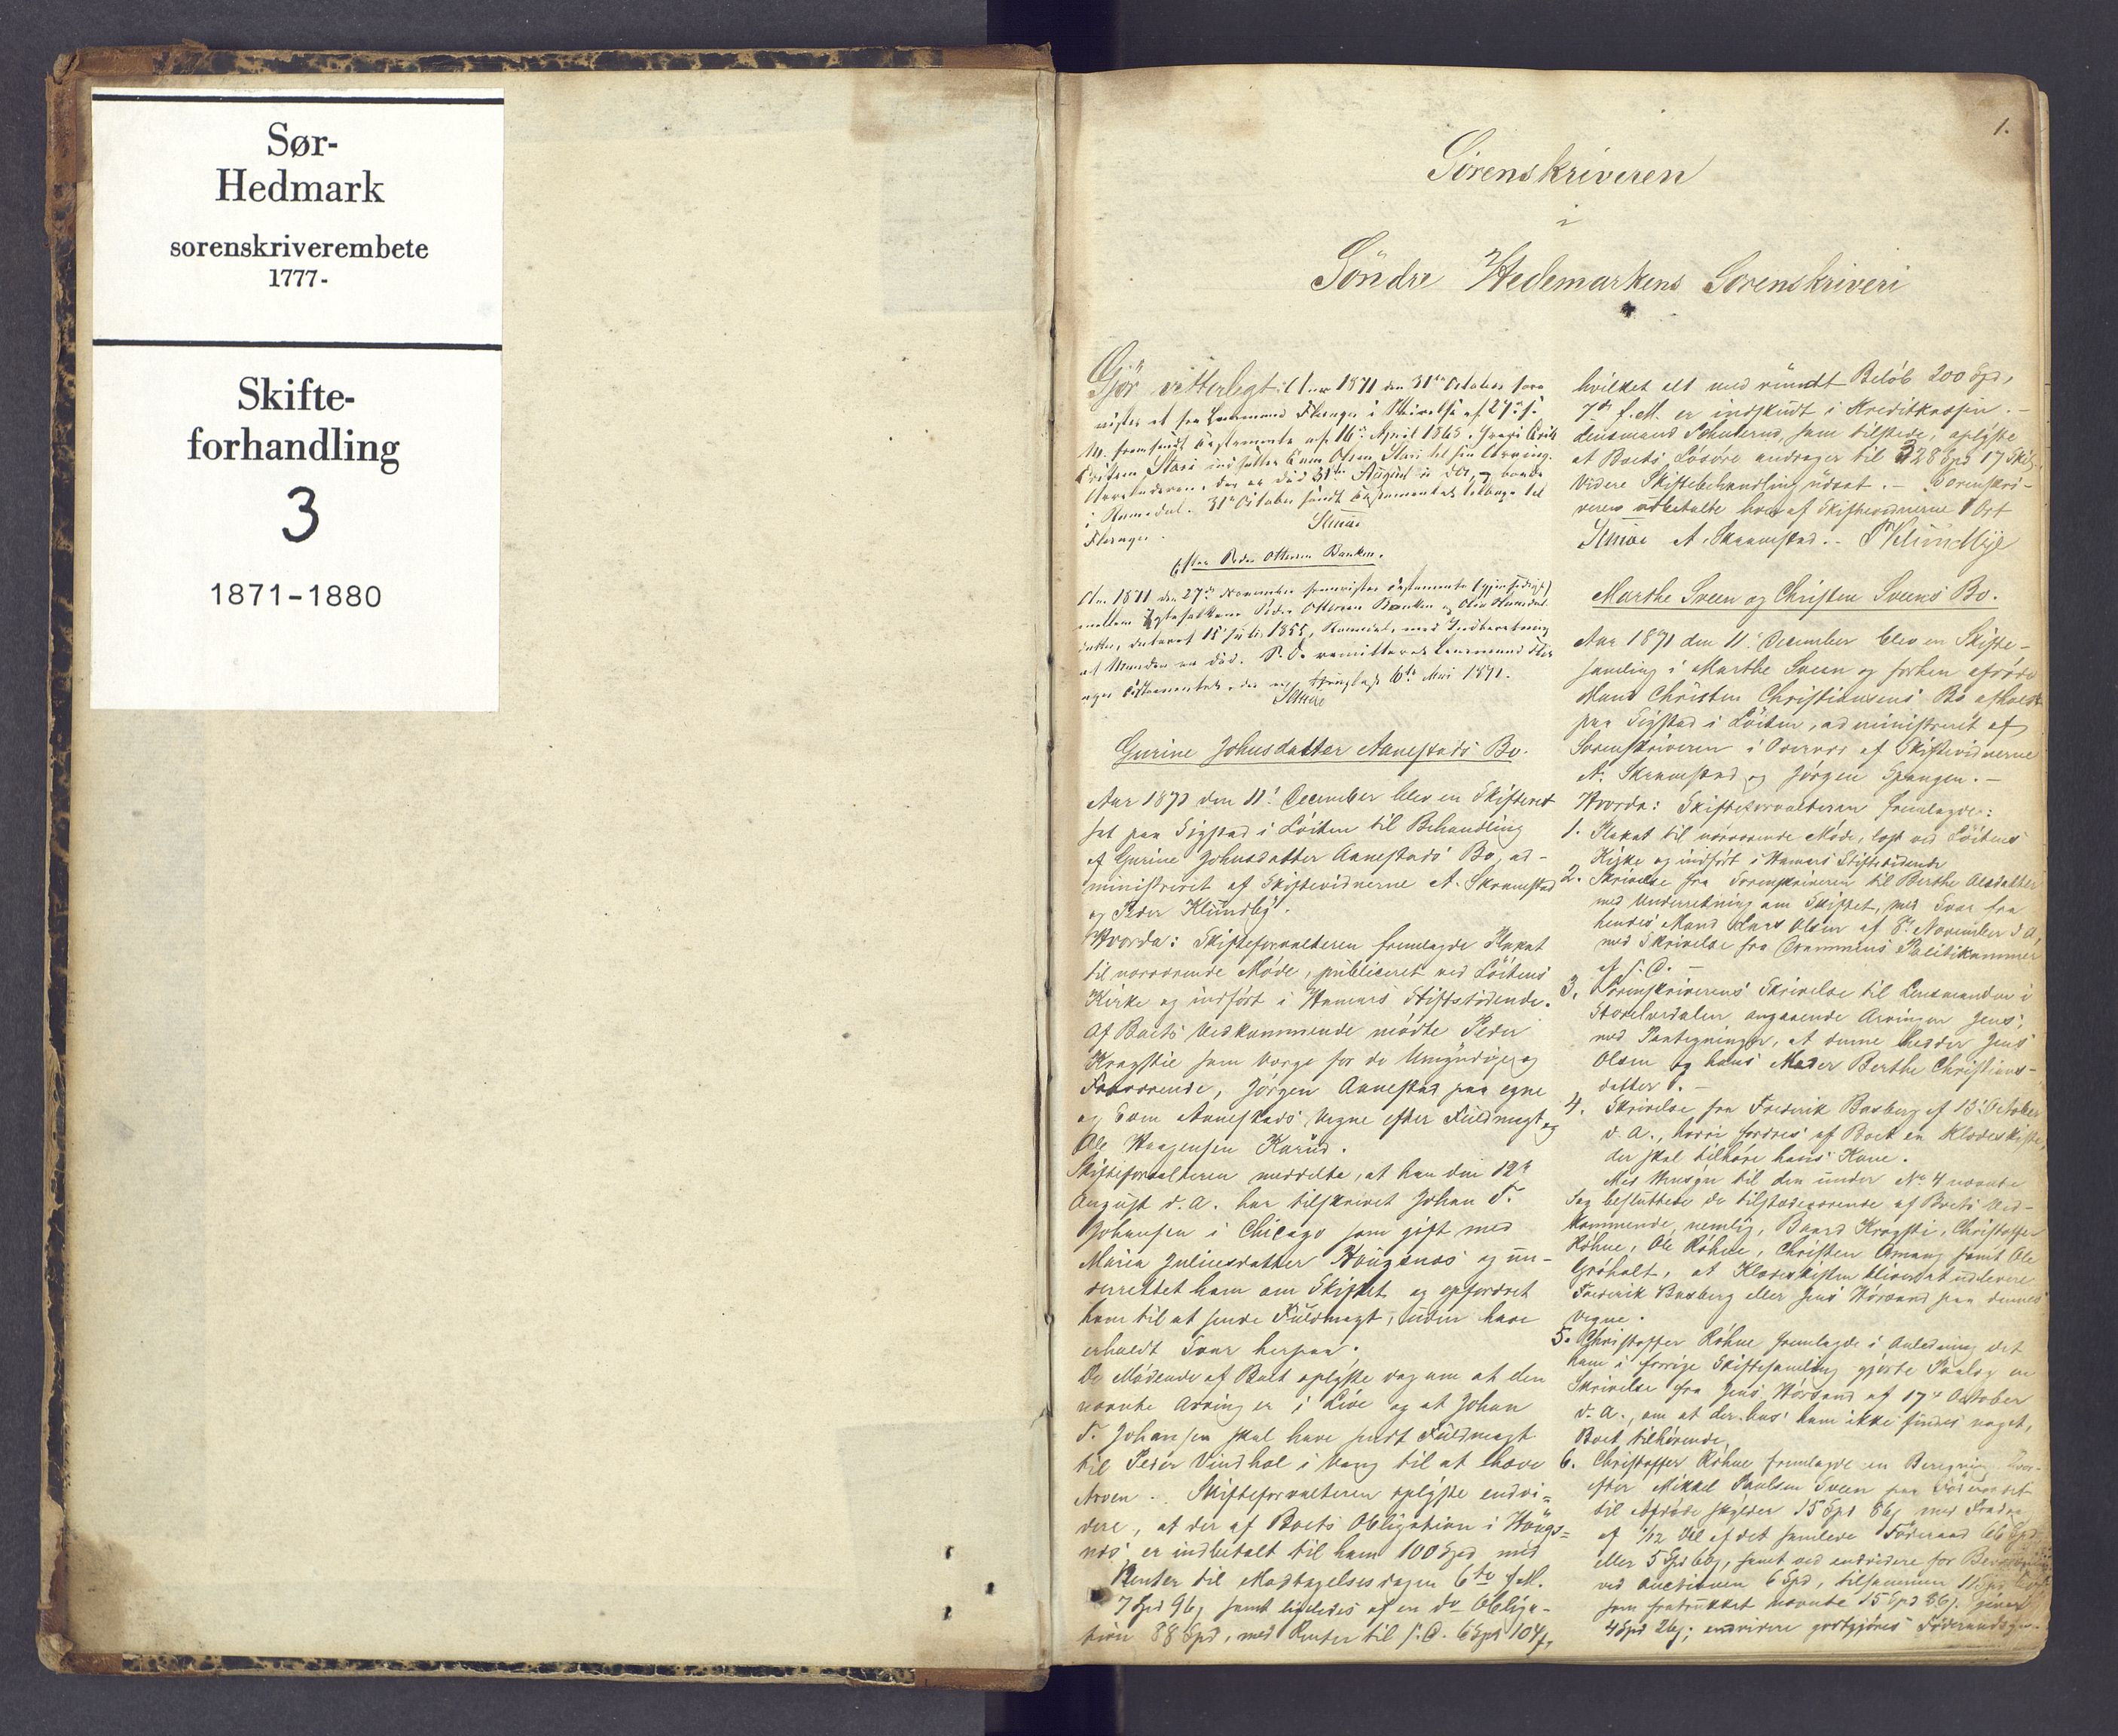 Sør-
Hedmark
sorenskriverembete
1777-
Skifte-
forhandling
3
1871-1880
1.
Sorenskriveren
i
Söndre Hedemarkens Sorenskriveri
Gjör vitterligt: Aar 1871 den 31te October
i Romsdal. 31te October sendt Testamentet tilbage til
Efter Peder Ottersen Banken.
Aar 1871 den 27de November fremvistes Testamente
mellem Ægtefolkene Peder Ottersen Banken og
datter, dateret 15 Juli 1855, Romedal, med Indberetning
at Manden er död. S. D. remitteret Lensmand
Gurine Johnsdatter Aanestads Bo.
Aar 1871 den 11te December blev en Skifteret
sat paa Sigstad i Löiten til Behandling
af Gurine Johnsdatter Aanestads Bo, ad-
ministreret af Skiftevidnerne A. Skramstad
og Peder Klundby.
Hvorda: Skifteforvalteren fremlagde Plakat
til nærværende Møde, publiceret ved Löitens
Kirke og indfört i Hamars Stiftstidende.
Af Boets Vedkommende mödte Peder
Kragstie som Værge for de Umyndige og
Fraværende, Jörgen Aanestad paa egne
og Even Aanestads Vegne efter Fuldmagt og
Ole Haagensen Karud.
Skifteforvalteren meddelte, at han den 12te
August d. A. har tilskrevet Johan T.
Johansen i Chicago som gift med
Maria Juliusdatter Houganæs og un-
derrettet ham om Skiftet og opfordret
ham til at sende Fuldmagt, uden have
erholdt Svar herpaa.
De Mödende af Boet oplyste dog om at den
nævnte Arving er i Live og at Johan
T. Johansen skal have sendt Fuldmagt
til Peder Vindhol i Vang til at hæve
Arven. Skifteforvalteren oplyste endvi-
dere, at der af Boets Obligation i Houg-
næs er indbetalt til ham 100 Spd med
Renter til Modtagelsesdagen 6te f. M.
7 Spd 96 s samt ligeledes af en do Obliga-
tion 88 Spd, med Renter til s. D. 6 Spd 104 s,
hvilket alt med rundt Belöb 200 Spd,
7de f. M. er indskudt i Kreditkassen. –
Lensmand Schulerud, som tilstede, oplyste
at Boets Lösöre andrager til 328 Spd 17 Skil.
Videre Skiftebehandling udsat. – Sorenskri-
veren udbetalte hver af Skiftevidnerne 1 Ort
A. Skramstad. – P Klundbye
Marthe Sveen og Christen Sveens Bo.
Aar 1871 den 11te December blev en Skifte-
samling i Marthe Sveen og forhen afdöde
Mand Christen Christiansens Bo afholdt
paa Sigstad i Löiten, administreret af
Sorenskriveren i Overvær af Skiftevidnerne
A. Skramstad og Jörgen Spangen. –
Hvorda: Skifteforvalteren fremlagde:
1. Plakat til nærværende Møde, læst ved Löitens
Kirke og indfört i Hamars Stiftstidende
2. Skrivelse fra Sorenskriveren til Berthe Olsdatter
med Underretning om Skiftet, med Svar fra
hendes Mand Lars Olsen af 8de November d. A.
med Skrivelse fra Drammens Politikammer
af s. D. –
3. Sorenskriverens Skrivelse til Lensmanden i
Storelvedalen angaaende Arvingen Jens,
med Paategninger, at denne hedder Jens
Olsen og hans Moder Berthe Christians-
datter. –
4. Skrivelse fra Frederik Basberg af 13de October
d. A., hvori fordres af Boet en Klædeskiste,
der skal tilhöre hans Kone.
Med Hensyn til den under No 4 nævnte
Sag besluttede de tilstedeværende af Boets Ved-
kommende, nemlig, Baard Kragsti, Christoffer
Röhne, Ole Röhne, Christen Amang samt Ole
Gröholt, at Klædeskisten bliver at udlevere
Frederik Basberg eller Jens Hörsand paa dennes
Vegne.
5. Christoffer Röhne fremlagde i Anledning det
ham i forrige Skiftesamling gjorte Paalæg en
Skrivelse fra Jens Hörsand af 17de October
d. A., om at der hos ham ikke findes noget,
Boet tilhörende
6. Christoffer Röhne fremlagde en Beregning
efter Mikkel Paulsen Sveen
til Afdöde skylder 15 Spd 86 s med Fradrag
af 1/12 Del af det samlede Föderaad 66 Spd
eller 5 Spd 60 s, samt ved endvidere for
ved Auctionen 6 Spd, tilsammen 11 Spd
som fratrukket nævnte 15 Spd 86 s. giver
4 Spd 26 s; endvidere godtgjöres